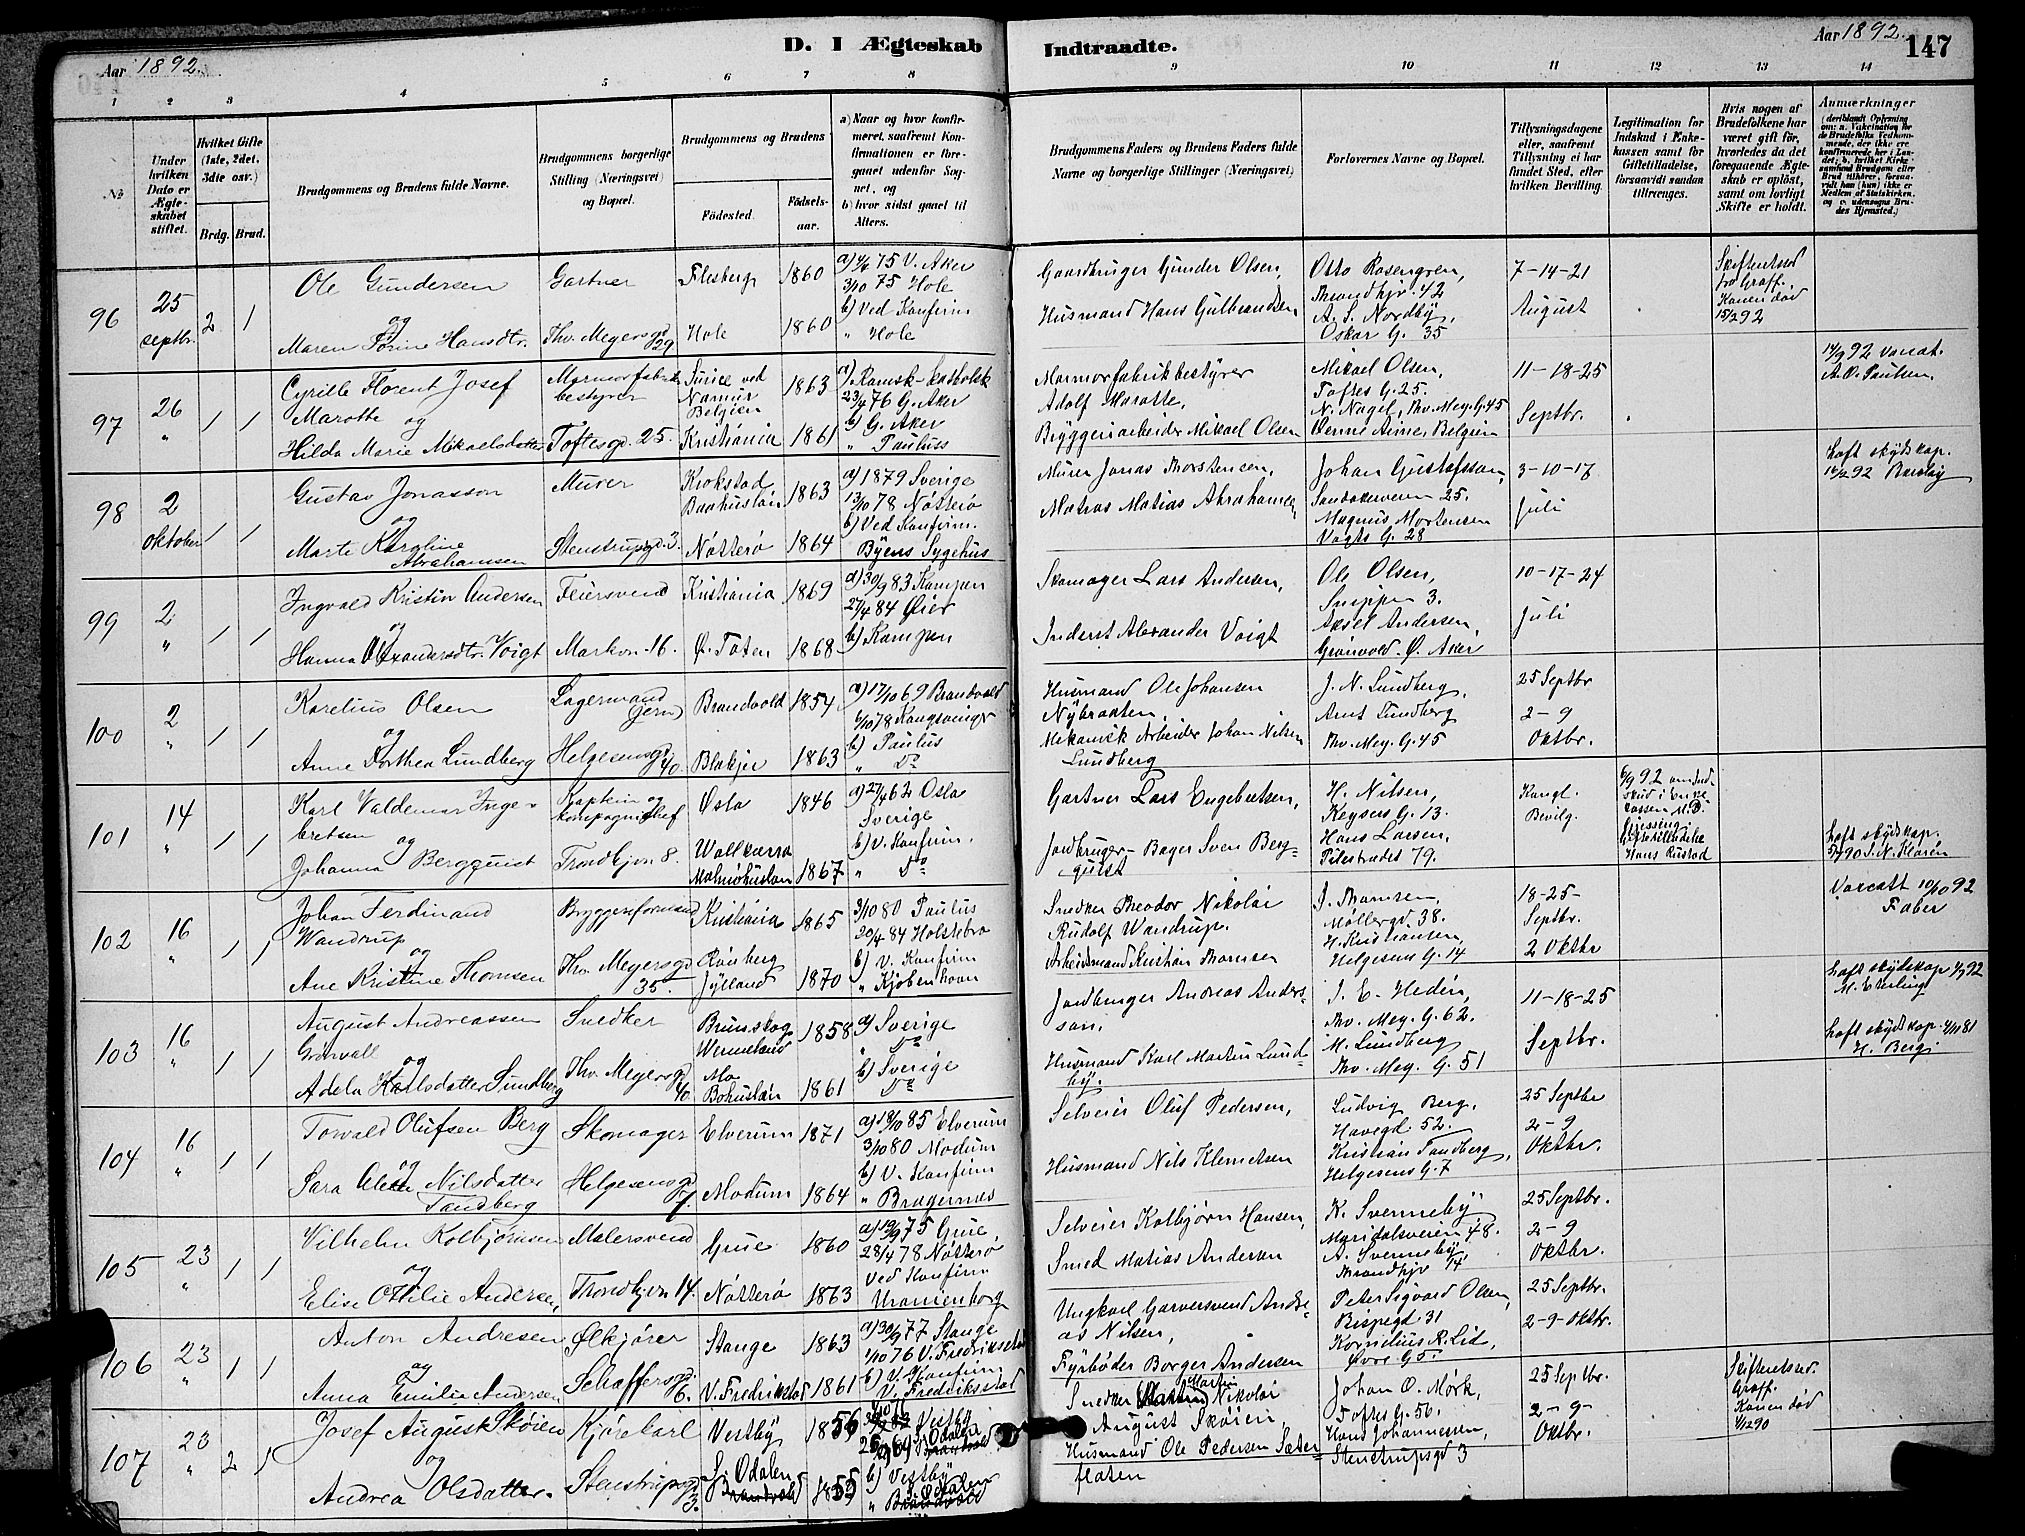 Aar 1892.
D. I Ægteskab Indtraadte.
Aar 1892.
147
1 2 3 4 5 6 7 8 9 10 11 12 13 14
№
Under hvilken Dato er Ægteskabet stiftet.
Hvilket Gifte (1ste, 2det, 3die osv.)
Brdg. Brud.
Brudgommens og Brudens fulde Navne.
Brudgommens borgerlige Stilling (Næringsvei) og Bopæl.
Brudgommens og Brudens
Födested.
Födsels-aar.
a) Naar og hvor konfirmeret, saafremt Konfirmationen er foregaaet udenfor Sognet, og
b) hvor sidst gaaet til Alters.
Brudgommens Faders og Brudens Faders fulde Navne og borgerlige Stillinger (Næringsvei)
Forlovernes Navne og Bopæl.
Tillysningsdagene eller, saafremt Tillysning ei har fundet Sted, efter hvilken Bevilling.
Legitimation for Indskud i Enkekassen samt for Giftetilladelse, forsaavidt saadan tiltrænges.
Hvis nogen af Brudefolkene har været gift för, hvorledes da det foregaaende Ægteskab er oplöst, samt om lovligt Skifte er holdt.
Anmærkninger
96
25 septbr.
2 1
Ole Gundersen
og
Maren Sörine Hansdtr.
Gartner
Thv. Meyersgd 29
Flesberg 1860
Hole 1860
75 V. Aker
3/10 75 Hole
b) Ved Konfirm
" Hole
Gaardbruger Gunder Olsen,
Husmand Hans Gulbrandsen,
Otto Rosengren,
Trondhjv. 42
A. S. Nordby,
Oskar G. 35
7-14-21
August
Skifteretsed
fra Graff.
Konen död
15/2 92
97
26 "
1 1
Cyrille Florent Josef
Marotte og
Hilda Marie Mikaelsdatter
Marmorfabrik
bestyrer
Toftesgd. 25.
Surice ved
Namur
Belgien 1863
Kristiania 1861
a) Romsk-katholsk
23/4 76 G. Aker
b) G. Aker
" Paulus
Marmorfabrikbestyrer
Adolf Marotte,
Bryggeriarbeider Mikael Olsen
Mikael Olsen,
Toftes G. 25.
N. Nagel, Thv. Mey. G. 45
Belgien
11-18-25
Septbr.
92 Vaccat.
A. O. Paulsen.
98
2 oktober
1 1
Gustav Jonasson
og
Marte Karoline
Abrahamsen
Murer
Stenstrupsgd. 3.
Krokstad
Baahuslän 1863
Nötterö 1864
a) 1879 Sverige
13/10 78 Nötterö
b) Ved Konfirm.
Byens Sygehus
Murer Jonas Thorstensen,
Matros Matias Abrahamsen,
Johan Gustafsson,
Sandakerveien 25.
Magnus Mortensen
Vogts G. 28
3-10-17
Juli
Laft skydskop.
92 Barclay
99
2 "
1 1
Ingvald Kristin Andersen
og
Hanna Alexandersdtr. Voigt
Feiersvend
Markvn. 16.
Kristiania 1869
Ö. Toten 1868
a) 30/9 83 Kampen
27/4 84 Öier
b) Kampen
Skomager Lars Andersen,
Inderst Alexander Voigt
Ole Olsen,
Snippen 3.
Aksel Andersen,
Grönvold. Ö. Aker
10-17-24
Juli
100
2 "
1 1
Karelius Olsen
og
Anne Dorthea Lundberg
Lagermand
(Jern)
Helgesensgd 40.
Brandvold 1854
Blakjer 1863
a) 17/10 69 Brandvold
6/10 78 Kongsvinger
b) Paulus
" Do
Husmand Ole Johansen
Nybraaten.
Mekanisk Arbeider Johan Nilsen
Lundberg
J. N. Lundberg,
Arnt Lundberg
Thv. Mey. G. 45
25 Septbr
2-9
Oktbr.
101
14 "
1 1
Karl Valdemar Inge-
bretsen
og
Johanna Bergquist
Kaptein og
Kompagnichef
Trondhjvn 8.
Oslo 1846
Wallkärra
Malmöhuslän 1867
a) 27/4 62 Oslo
Sverige
b) V. Konfirm.
" Do
Gartner Lars Engebretsen,
Jordbruger - Bager Sven Berg-
quist
H. Nilsen,
Keysers G. 13.
Hans Larsen,
Pilestrædet 79.
Kongl.
Bevilg.
6/9 92 om Ind-
skud i Enke
kassen
Giftetilladelse
Hans Rustad
Laft skydskop.
90 S. N. Klarén
102
16 "
1 1
Johan Ferdinand
Wandrup
og
Ane Kristine Thomsen
Bryggeriformand
Thv. Meyersgd
35.
Kristiania 1865
Jylland 1870
3/10 80 Paulus
20/4 84 Holstebro
b) V. Konfirm
" Kjöbenhavn
Snedker Theodor Nikolai
Rudolf Wandrup.
Arbeidsmand Kristian Thomsen
J. Thomsen,
Möllergd. 38.
H. Kristiansen,
Helgesens G. 14
18-25-
Septbr.
2 Oktbr
Vaccatt. 10/10 92
Faber
103
16 "
1 1
August Andreassen
Grönvall
og
Adela Karlsdatter Lundberg
Snedker
Thv. Meyersgd 40.
Brunskog
Wermeland 1858
Mo
Bohuslän 1861
a) Sverige
" Do
b) Sverige
" Do
Jordbruger Andreas Anders-
son.
Husmand Karl Martin Lund-
by.
J. E. Hedin,
Thv. Mey. G. 62.
M. Lundberg
Thv. Mey. G. 51
11-18-25
Septbr.
Laft skydskop 92
Laft skydskop. 81
H. Berg.
104
16 "
1 1
Torvald Olufsen Berg
og
Sara Olette Nilsdatter
Tandberg
Skomager
Helgesensgd
7.
Elverum 1871
Modum 1864
a) 18/10 85 Elverum
3/10 80 Modum
b) V. Konfirm
" Bragernæs
Selveier Oluf Pedersen,
Husmand Nils Klemetsen
Ludvig Berg,
Havegd. 52.
Kristian Tandberg,
Helgesens G. 7
25 Septbr
2-9
Oktbr.
105
23 "
1 1
Vilhelm Kolbjörnsen
og
Elise Othilie Andersen,
Malersvend
Trondhjvn 14.
Grue 1860
Nötterö 1863
a) 19/9 75 Grue,
28/4 78 Nötterö
Ved Konfirm
Uranienborg
Selveier Kolbjörn Hansen,
Smed Matias Andersen
K. Svenneby
Maridalsveien 48.
A. Svenneby,
Trondhjv 14
25 Septbr.
2-9
Oktbr.
106
23 "
1 1
Anton Andresen
og
Anna Emilie Andersen
Ölkjörer
Schaffersgd.
6.
Stange 1863
V. Fredrikstad 1861
a) 30/9 77 Stange
1/10 76 V. Fredrikstad
b) V. Konfirm
V. Fredriksstad
Ungkarl Garversvend Andre-
as Nilsen,
Fyrböder Borger Andersen
Peter Sigvard Olsen,
Bispegd. 31
Kornelius R. Lid,
Övre G 5.
25 Septbr.
2-9-Oktbr.
107
23 "
2 1
Josef August Sköien
og
Andrea Olsdatter.
Kjörekarl
Stenstrupsgd
3.
Vestby 1856
S. Odalen
Brandvold 1855
Vestby
S. Odalen
Brandvold
b) Vestby
S. Odalen
" Brandvold
Snedker Martin Nikolai
August Sköien,
Husmand Ole Pedersen Sæter
flaten
Johan O. Mörk,
Toftes G. 50.
Hans Johannessen,
Stenstrupsgd 3
25 Septbr.
2-9-
Oktbr.
Skifteretsed.
Graff.
Konen död
1/12 90